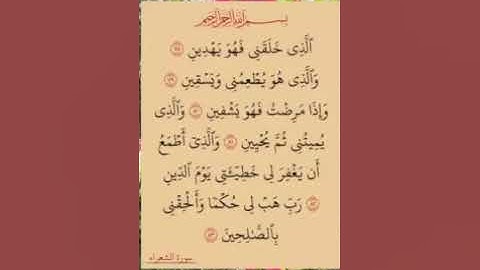 بسم الله الرحمن الرحيم
ٱلَّذِى خَلَقَنِى فَهُوَ يَهْدِينِ ٧٨
وَٱلَّذِى هُوَ يُطْعِمُنِى وَيَسْقِينِ ٧٩
وَإِذَا مَرِضْتُ فَهُوَ يَشْفِينِ ٨٠ وَٱلَّذِى
يُمِيتُنِى ثُمَّ يُحْيِينِ ٨١ وَٱلَّذِىٓ أَطْمَعُ
أَن يَغْفِرَ لِى خَطِيٓـَٔتِى يَوْمَ ٱلدِّينِ
٨٢ رَبِّ هَبْ لِى حُكْمًا وَأَلْحِقْنِى
بِٱلصَّـٰلِحِينَ ٨٣
سورة الشعراء